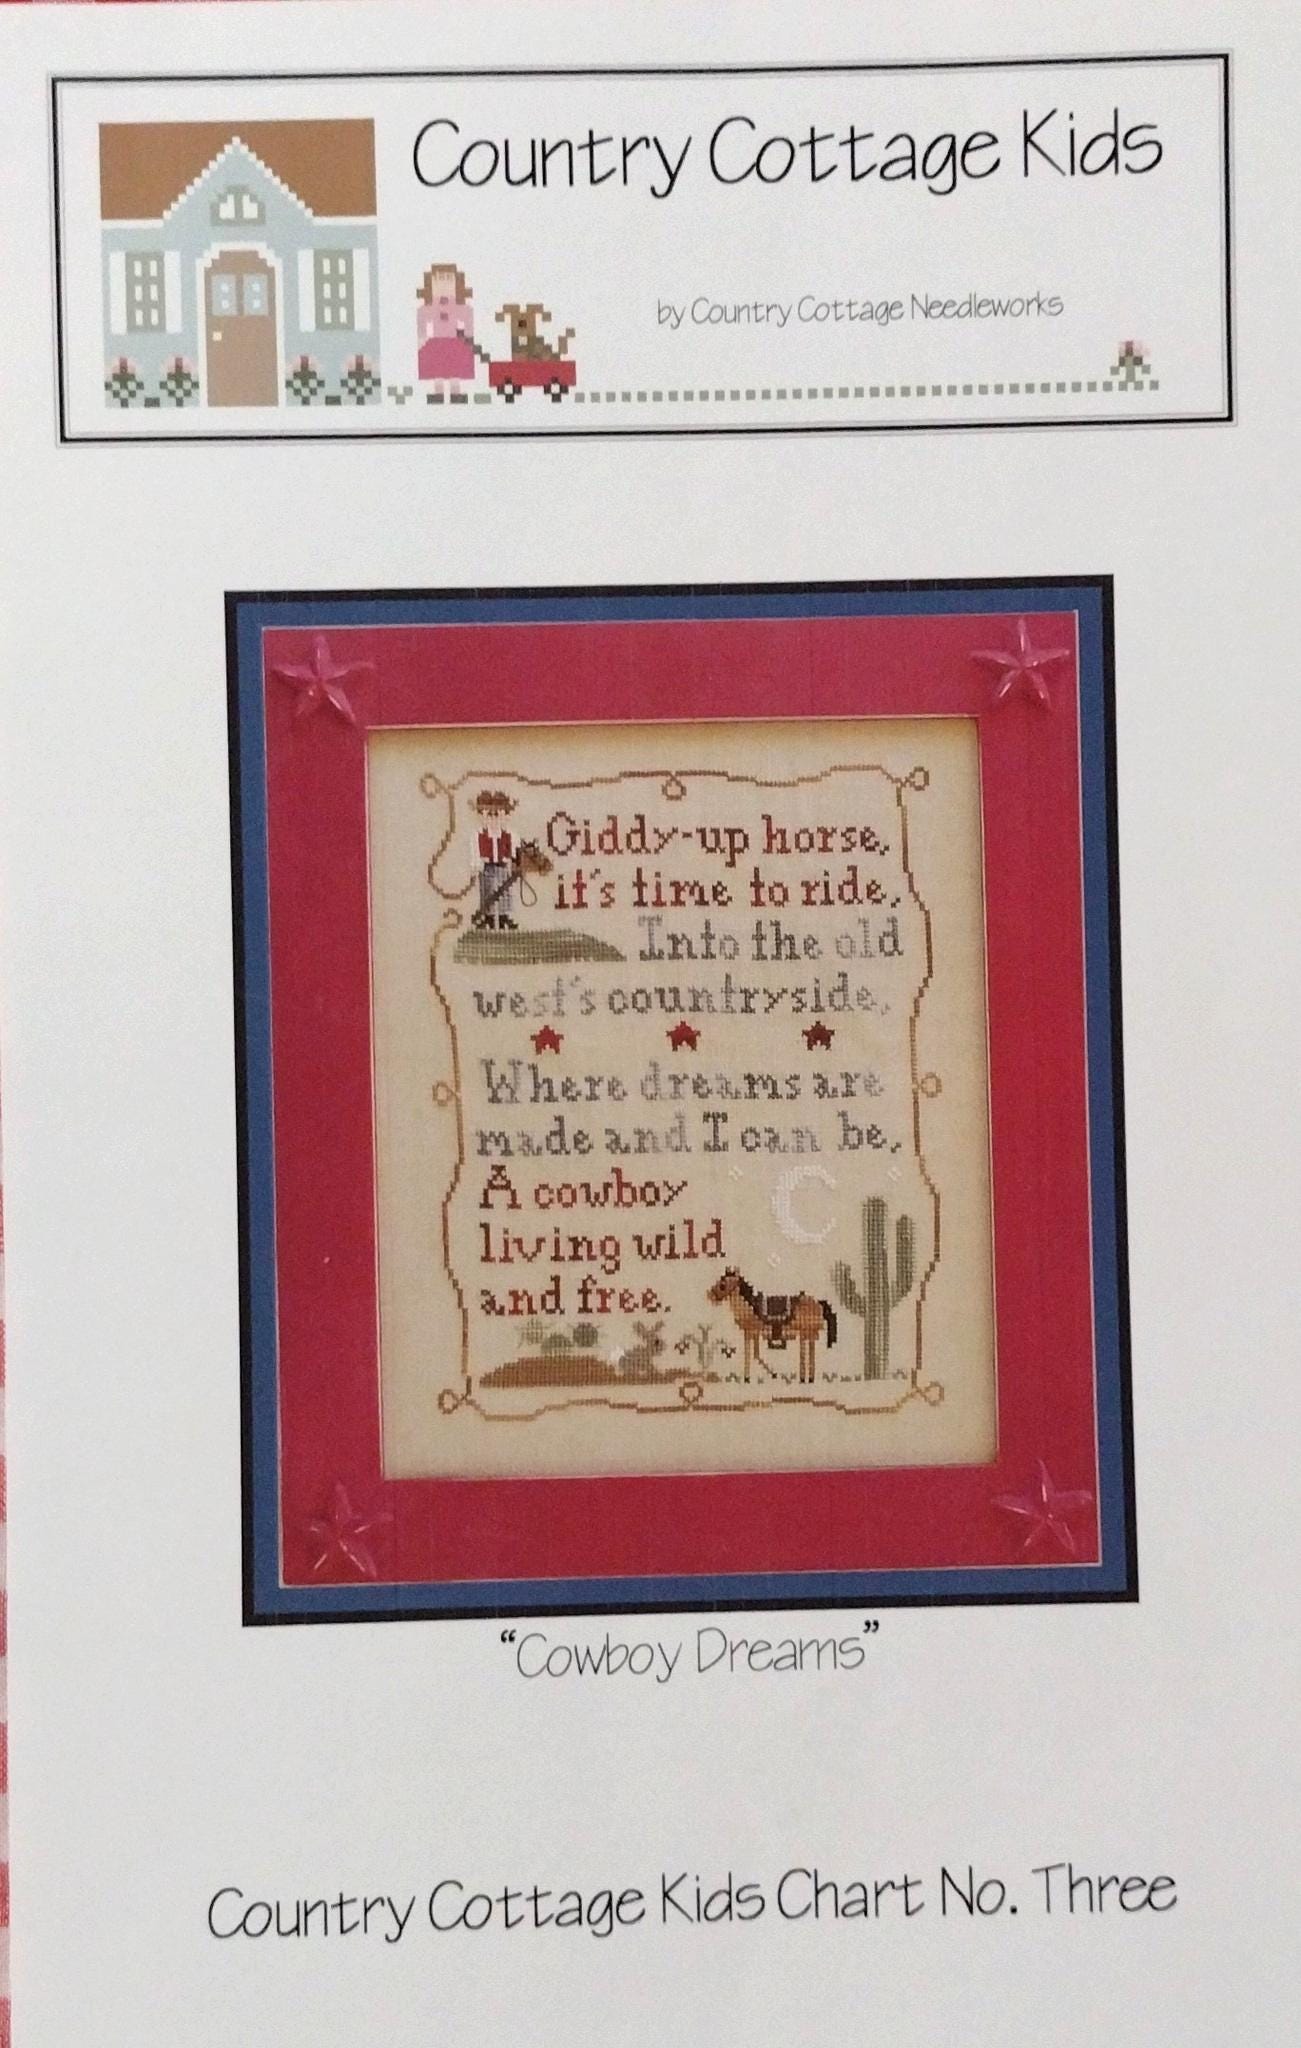 Country Cottage Kids
by Country Cottage Needleworks
Giddy-up horse,
it's time to ride,
Into the old
west's countryside,
Where dreams are
made and I can be,
A cowboy
living wild
and free.
"Cowboy Dreams"
Country Cottage Kids Chart No. Three